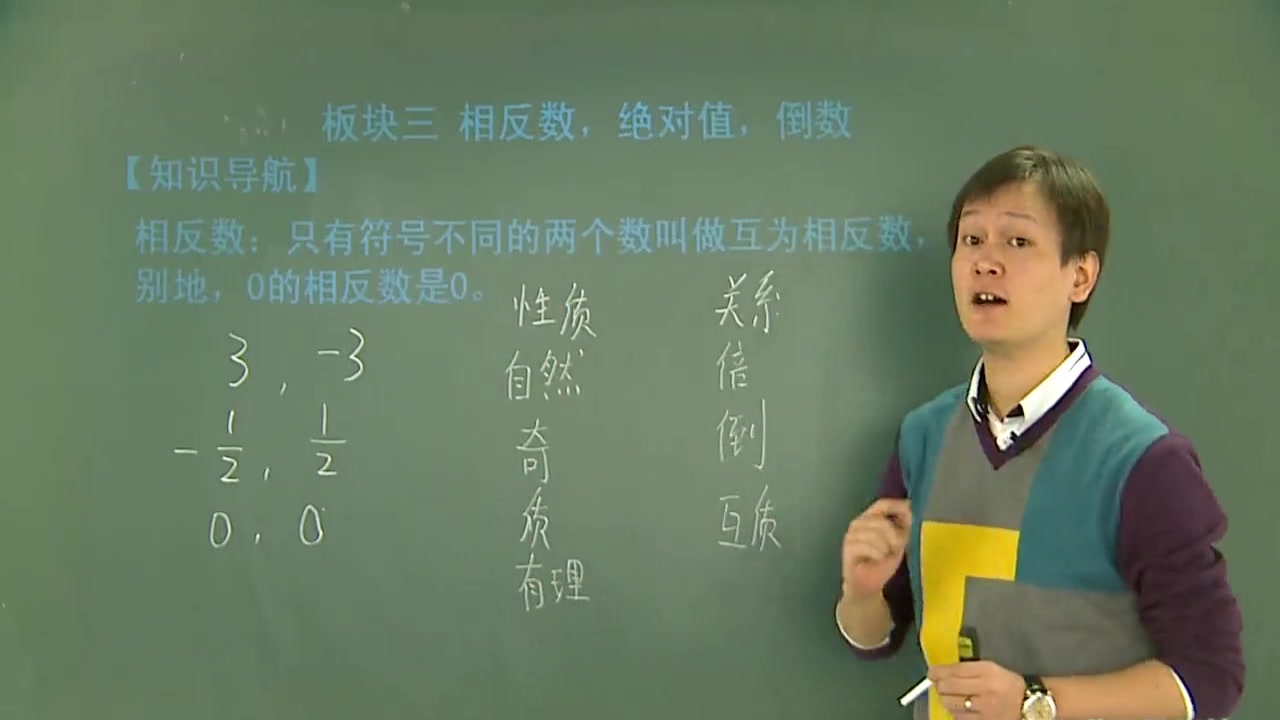 板块三 相反数，绝对值，倒数
【知识导航】
相反数：只有符号不同的两个数叫做互为相反数，
别地，0的相反数是0。
3，-3
-1/2，1/2
0，0
性质
自然
奇
质
有理
关系
倍
倒
互质